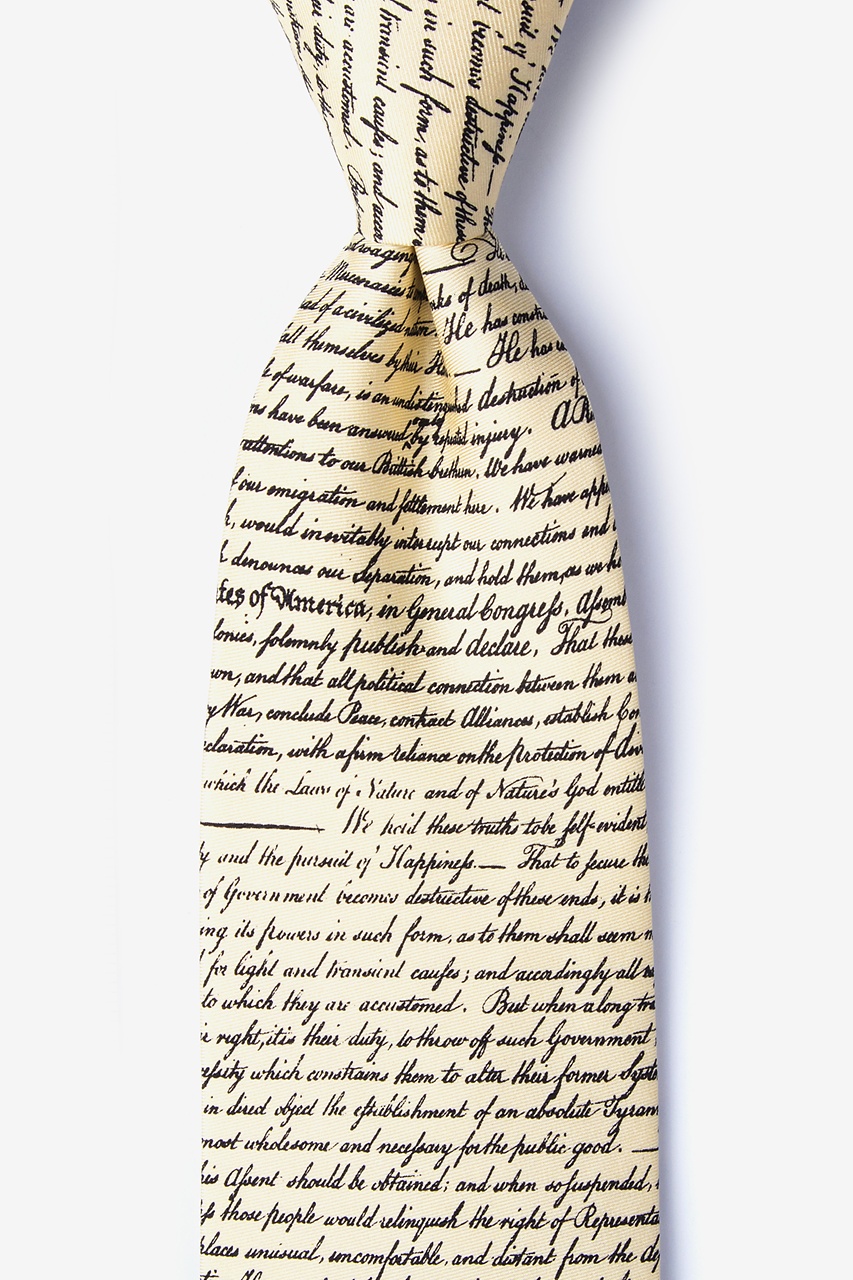 suit of Happiness.—
t becomes destructive of these
in such form, as to them
transient causes; and accor
are accustomed. But
ir duty, to thr
d waging
Mercenaries to
ead of a civilized nation. He
all themselves by their Ha
of warfare, is an undistinguished destruction of
ns have been answered only by repeated injury. A
attentions to our Brittish brethren. We have warned
f our emigration and settlement here. We have appe
h, would inevitably interrupt our connections and
denounces our Separation, and hold them, as we ho
tes of America, in General Congress, Assemb
lonies, solemnly publish and declare, That these
wn, and that all political connection between them a
y War, conclude Peace, contract Alliances, establish Com
eclaration, with a firm reliance on the Protection of divi
which the Laws of Nature and of Nature's God entitle
We hold these truths to be self-evident
ty and the pursuit of Happiness.— That to secure the
of Government becomes destructive of these ends, it is t
ing its powers in such form, as to them shall seem m
for light and transient causes; and accordingly all
to which they are accustomed. But when a long tra
ir right, it is their duty, to throw off such Government
cessity which constrains them to alter their former Syste
in direct object the establishment of an absolute Tyran
most wholesome and necessary for the public good. —
his Assent should be obtained; and when so suspended,
ss those people would relinquish the right of Representa
places unusual, uncomfortable, and distant from the de
rks of death, d
He has constr
— He has